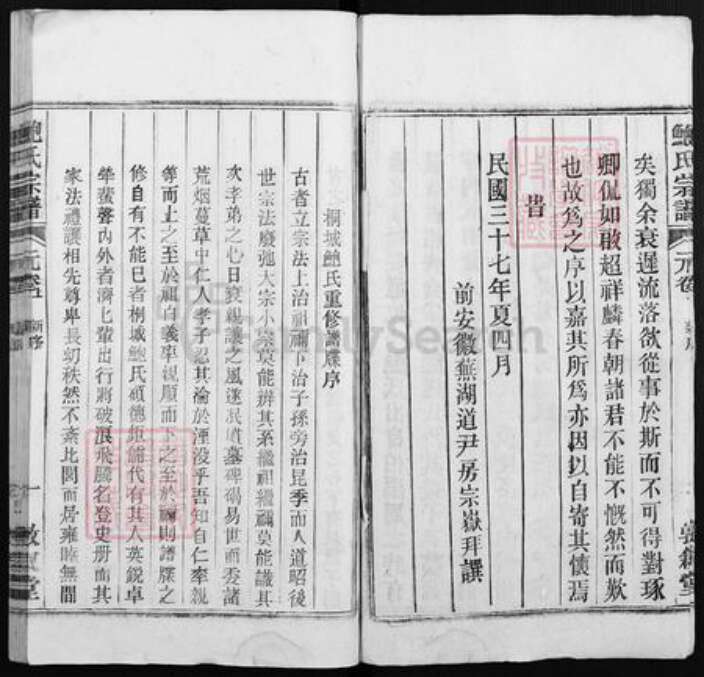 矣獨余衰遲流落欲從事於斯而不可得對琢
卿侃如敢超祥麟春朝諸君不能不慨然而歎
也故爲之序以嘉其所爲亦因以自寄其懷焉
旹
民國三十七年夏四月
前安徽蕪湖道尹房宗嶽拜譔
鮑氏宗譜
元卷
桐城鮑氏重修譜牒序
古者立宗法上治祖禰下治子孫旁治昆季而人道昭後
世宗法廢弛大宗小宗莫能辨其系繼祖繼禰莫能識其
次孝弟之心日衰親讓之風遂泯墳墓碑碣易世而委諸
荒烟蔓草中仁人孝子忍其淪於湮没乎吾知自仁率親
等而上之至於祖自義率祖順而下之至於禰則譜牒之
修自有不能已者桐城鮑氏碩德鉅儒代有其人英銳卓
犖蜚聲內外者濟匕輩出行將破浪飛騰名登史册而其
家法禮讓相先尊卑長幼秩然不紊比閭而居雍睦無間
鮑氏宗譜
元卷
新序
一
敦叙堂
FamilySearch